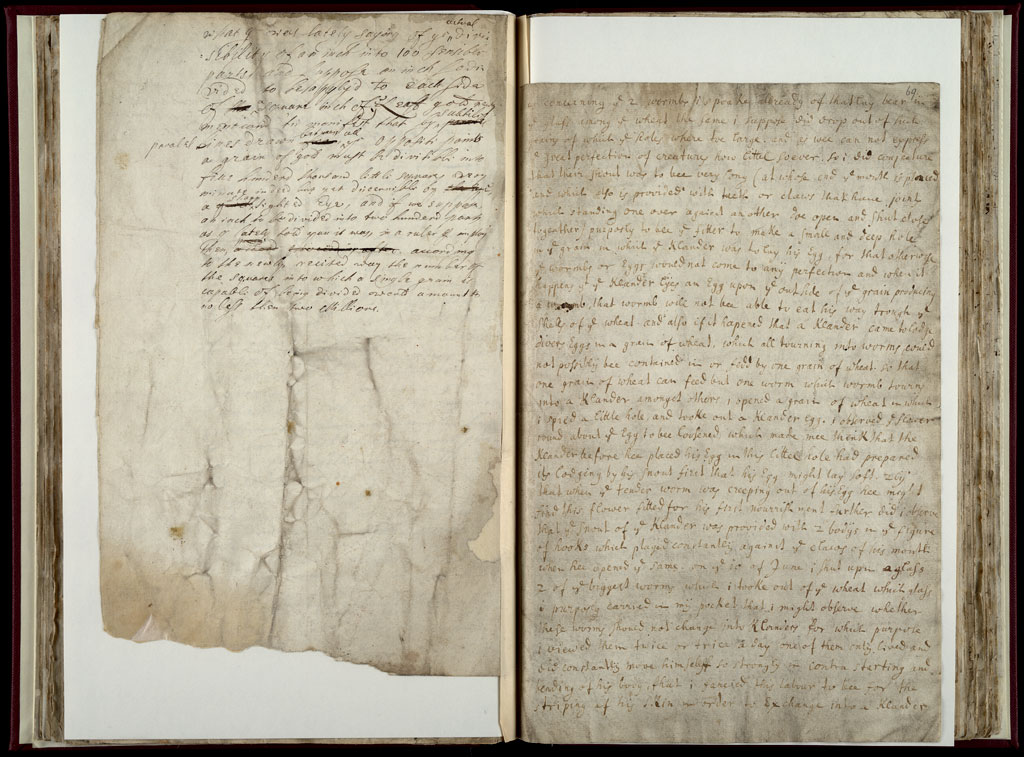 actual
what I was lately saying of ye divi
sibility of an inch into 100 sensible
parts and suppose an inch so di
vided to be apply'd to each side
of square inch of Leaf gold
manifest that by subtile
paralel lines drawn between all ye opposite points
a grain of gold must be divisible into
five hundred thousand little squares very
minute indeed but yet discernible by
a sighted Eye, and if we suppose
an inch to be divided into two hundred parts
as I lately told you it was in a ruler
then according
to the newly recited way the number of
the squares into which a single grain is
capable of being divided amount to
no less then two Millions.
69.
concerning ye 2 wormbs I spoake already of that lay
glass among ye wheat the same I suppose did drop out of such
grains of which ye holes where too large. and as wee can not express
ye great perfection of creatures how littel soever. so I did conjecture
that their snout was to bee very long (at whose end ye mouth is placed
and which also is provided with teeth or claws that have joint
which standing one over against an other doe open and shut close
together) purposly to bee ye fitter to make a small and deep hole
in ye grain in which ye Klander was to lay his Egg, for that otherwise
ye wormbs or Eggs would not come to any perfection and when it
happens yt ye Klander lyes an Egg upon ye outside of ye grain producting
a wormb, that wormb will not bee able to eat his way trough ye
shell of ye wheat. and also if it hapened that a Klander came to lodge
divers Eggs in a grain of wheat, which all tourning into worms could
not possibly bee contained in or fedd by one grain of wheat. so that
one grain of wheat can feed but one worm which wormb tourns
into a Klander amongst others, I opened a grain of wheat in which
I spied a little hole, and tooke out a Klander Egg. I observed ye flower
round about ye Egg to bee loosened which made mee think that the
Klander before hee placed his Egg in this littel hole had prepared
its lodging by his snout first that his Egg might lay soft. 2ly
that when ye tender worm was creeping out of his Egg hee might
find this flower fitted for his first nourrishment further did I observe
that ye snout of ye Klander was provided with 2 bodys in ye figure
of hooks which played constantly against ye claws of his mouth
when hee opened ye same. on ye 20 of June I shut upon a glass
2 of ye biggest worms which I tooke out of ye wheat which glass
I purposly carried in my pocket that I might observe whether
these worms should not change into Klanders for which purpose
I viewed them twice or trice a day one of them only lived and
did constantly move himself so strongly in contin sterting and
bending of his body, that I fancied this labour to bee for the
striping of his skin in order to Exchange into a Klander